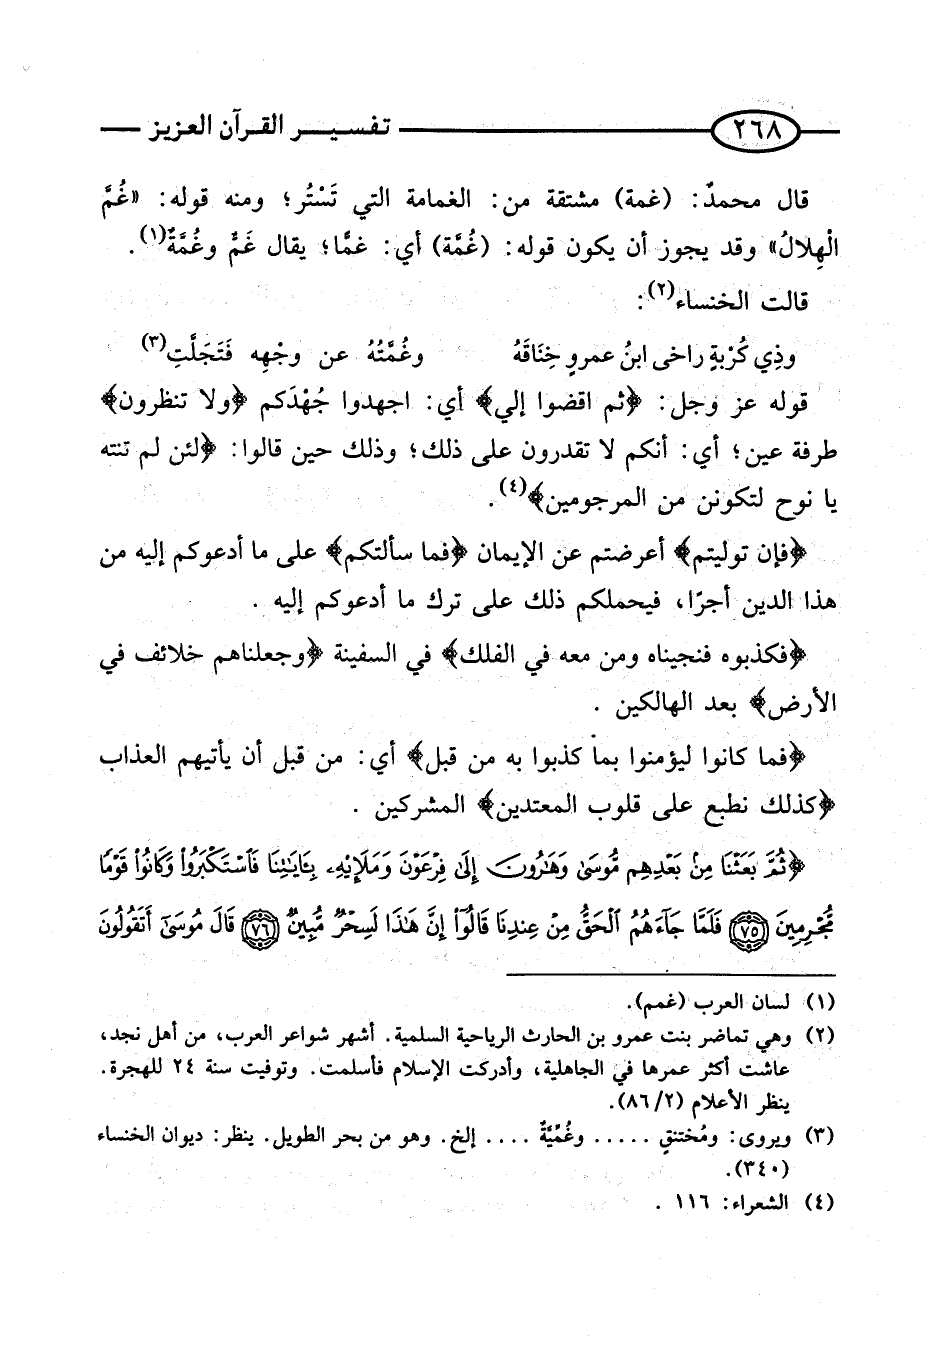 ٢٦٨ تفسير القرآن العزيز
قال محمدٌ: (غمة) مشتقة من: الغمامة التي تَسْتُر؛ ومنه قوله: «غُمَّ
الْهِلالُ» وقد يجوز أن يكون قوله: (غُمَّة) أي: غمًّا؛ يقال غَمٌّ وغُمَّةٌ(١).
قالت الخنساء(٢):
وذِي كُرْبةٍ راخى ابنُ عمروٍ خِنَاقَهُ وغُمَّتُهُ عن وجْهِه فَتَجَلَّتِ(٣)
قوله عز وجل: ﴿ثم اقضوا إلي﴾ أي: اجهدوا جُهْدَكم ﴿ولا تنظرون﴾
طرفة عين؛ أي: أنكم لا تقدرون على ذلك؛ وذلك حين قالوا: ﴿لئن لم تنته
يا نوح لتكونن من المرجومين﴾(٤).
﴿فإن توليتم﴾ أعرضتم عن الإيمان ﴿فما سألتكم﴾ على ما أدعوكم إليه من
هذا الدين أجرًا، فيحملكم ذلك على ترك ما أدعوكم إليه .
﴿فكذبوه فنجيناه ومن معه في الفلك﴾ في السفينة ﴿وجعلناهم خلائف في
الأرض﴾ بعد الهالكين .
﴿فما كانوا ليؤمنوا بما كذبوا به من قبل﴾ أي: من قبل أن يأتيهم العذاب
﴿كذلك نطبع على قلوب المعتدين﴾ المشركين .
﴿ثُمَّ بَعَثْنَا مِنۢ بَعْدِهِم مُّوسَىٰ وَهَٰرُونَ إِلَىٰ فِرْعَوْنَ وَمَلَإِيْهِۦ بِـَٔايَٰتِنَا فَٱسْتَكْبَرُوا۟ وَكَانُوا۟ قَوْمًا
مُّجْرِمِينَ ﴿٧٥﴾ فَلَمَّا جَآءَهُمُ ٱلْحَقُّ مِنْ عِندِنَا قَالُوٓا۟ إِنَّ هَٰذَا لَسِحْرٌ مُّبِينٌ ﴿٧٦﴾ قَالَ مُوسَىٰٓ أَتَقُولُونَ
(١) لسان العرب (غمم).
(٢) وهي تماضر بنت عمرو بن الحارث الرياحية السلمية. أشهر شواعر العرب، من أهل نجد،
عاشت أكثر عمرها في الجاهلية، وأدركت الإسلام فأسلمت. وتوفيت سنة ٢٤ للهجرة.
ينظر الأعلام (٨٦/٢).
(٣) ويروى: ومُختنقٍ ..... وغُمَّيَّةٌ .... إلخ. وهو من بحر الطويل. ينظر: ديوان الخنساء
(٣٤٠).
(٤) الشعراء: ١١٦ .